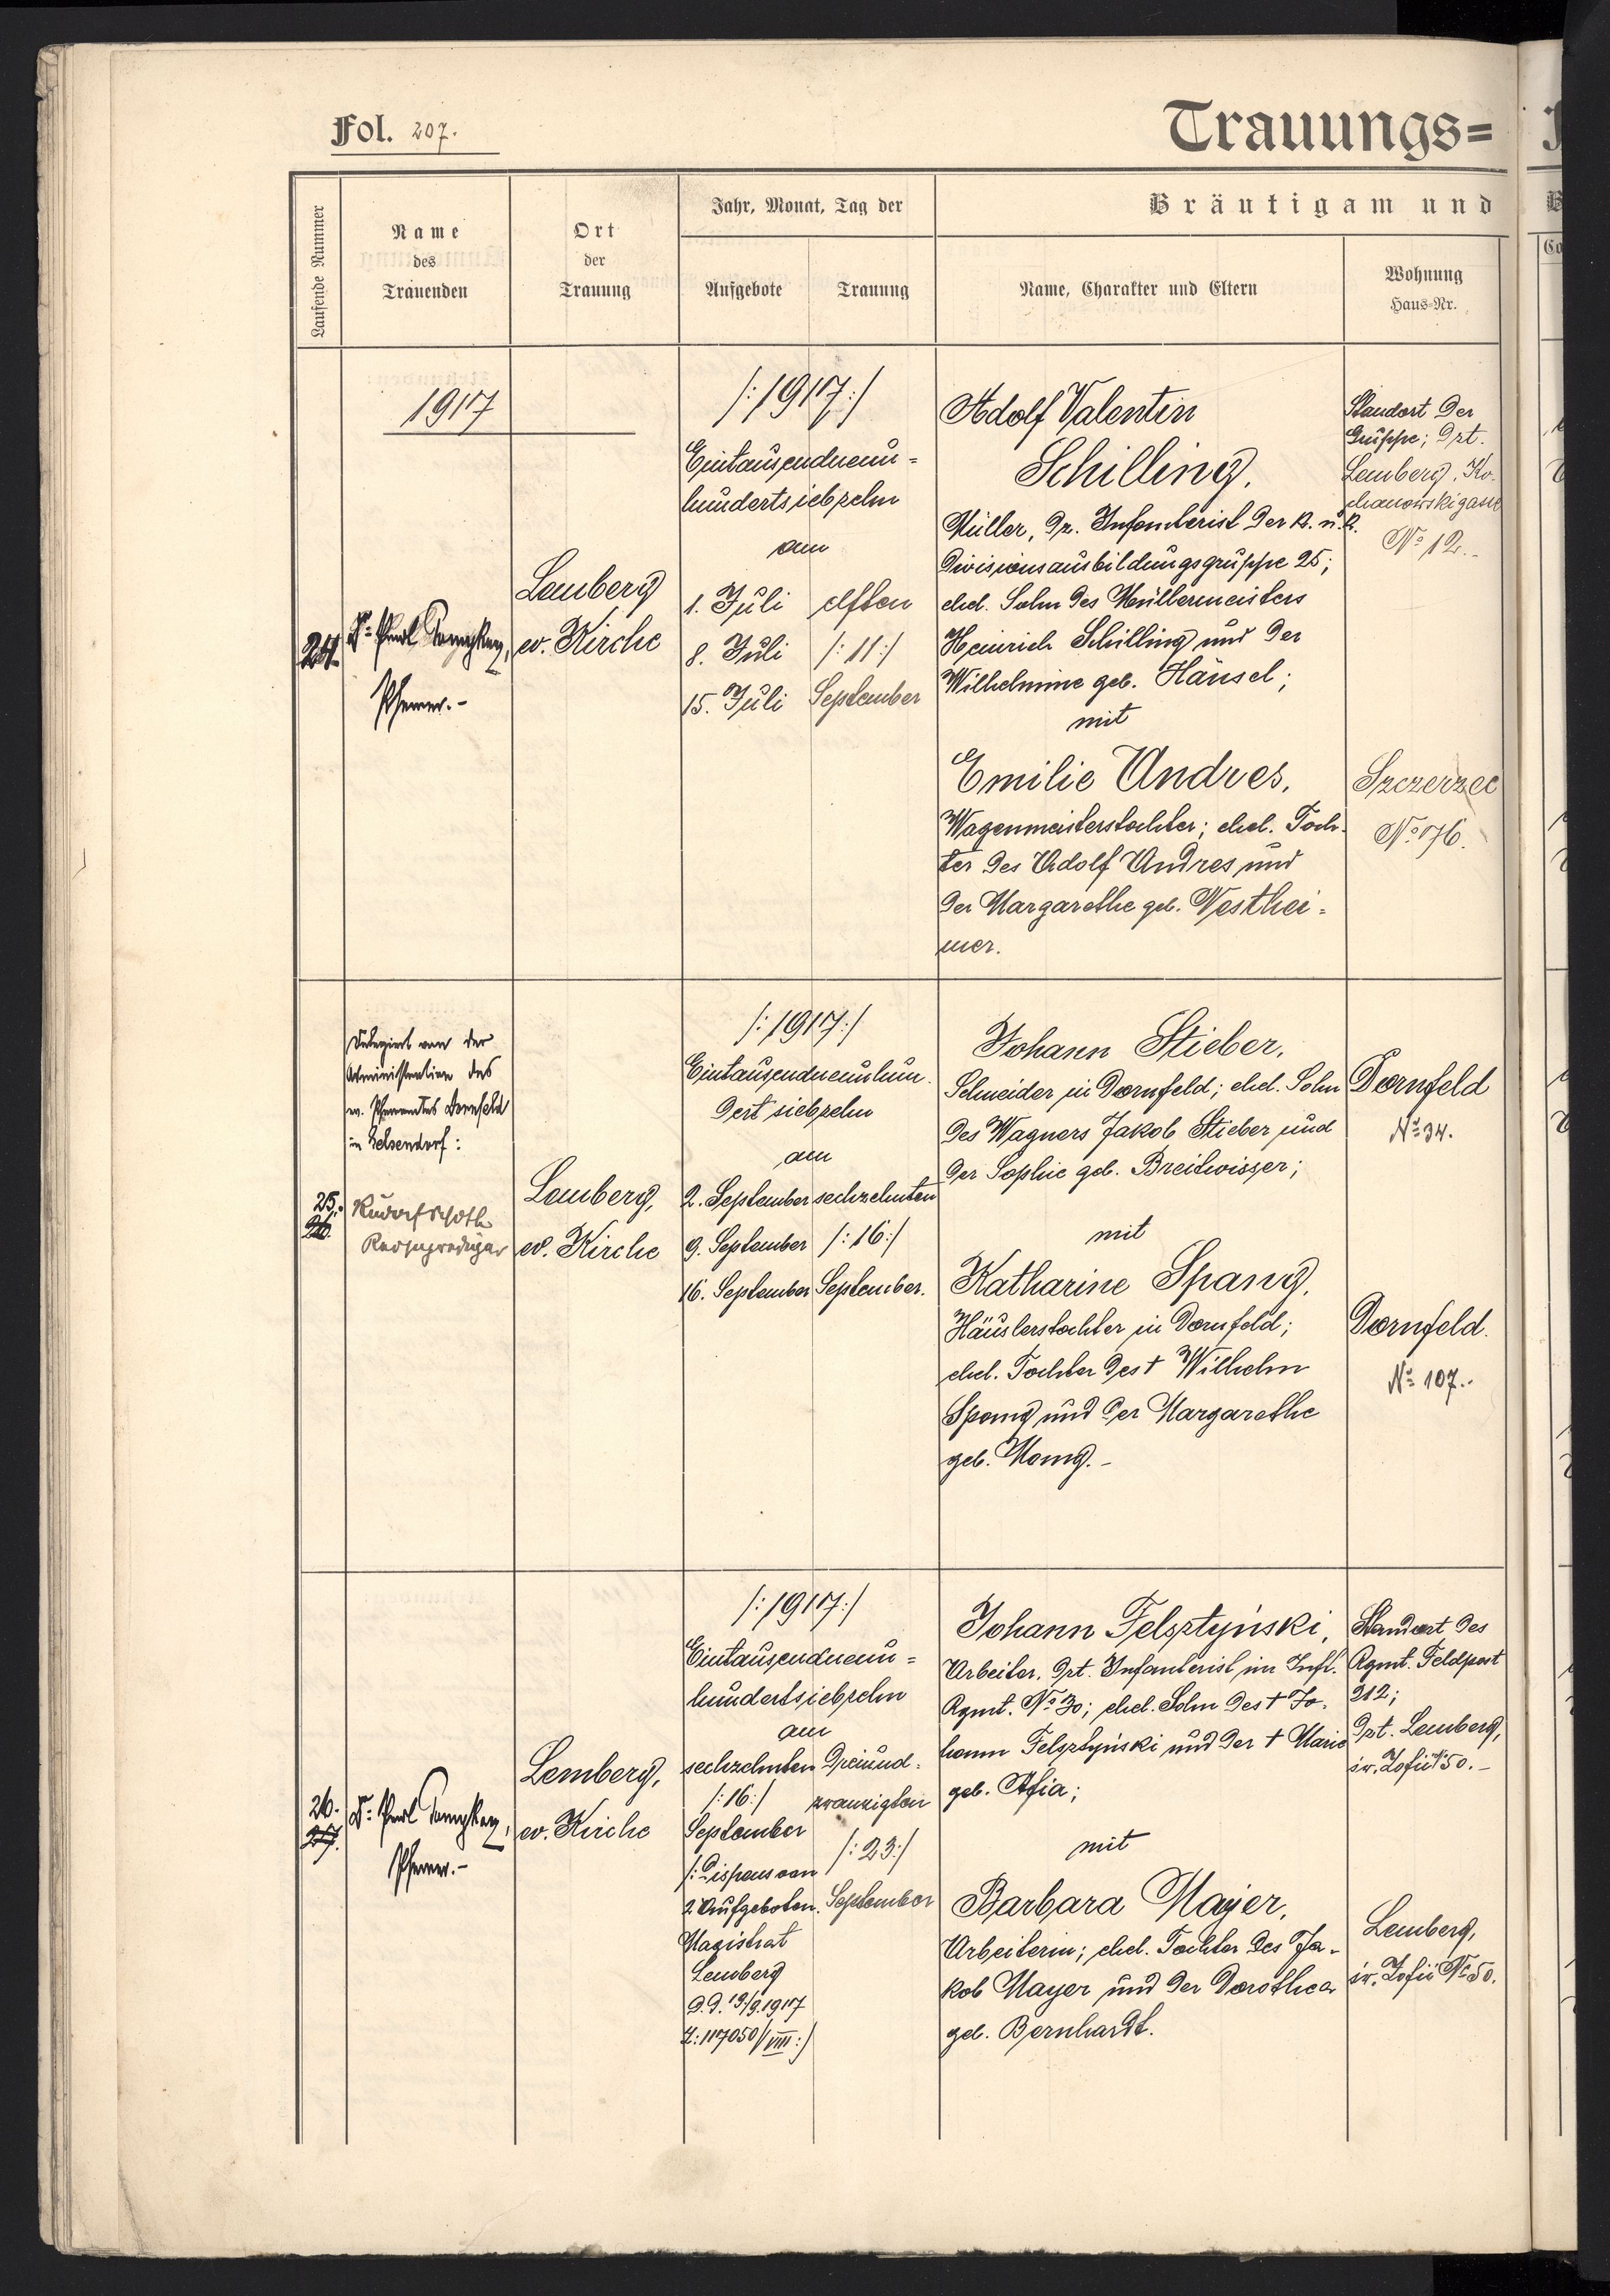 Fol. 207.
Trauungs=
Laufende Nummer
Name
des
Trauenden
Ort
der
Trauung
Jahr, Monat, Tag der
Aufgebote
Trauung
Bräutigam und
Name, Charakter und Eltern
Wohnung
Haus=Nr.
1917
24.
Dr. Paul
Pfarrer.-
Lemberg
ev. Kirche
/:1917:/
Eintausendneun=
hundertsiebzehn
am
1. Juli
8. Juli
15. Juli
elften
/:11:/
September
Adolf Valentin
Schilling,
Müller, dz. Infanterist der k. u. k.
Divisionsausbildungsgruppe 25;
ehel. Sohn des Müllermeisters
Heinrich Schilling und der
Wilhelmine geb. Hänsel;
mit
Emilie Andres,
Wagenmeisterstochter; ehel. Toch-
ter des Adolf Andres und
der Margarethe geb. Westhei=
mer.
Standort der
Gruppe; dzt.
Lemberg, Ko-
chanowskigasse
No 12.-
Szczerzec
No 176.
25.
26.
Delegiert von der
Administration des
ev. Pfarramtes Dornfeld
in Gelsendorf:
Rudolf
Reiseprediger
Lemberg,
ev. Kirche
/:1917:/
Eintausendneunhun-
dertsiebzehn
am
2. September
9. September
16. September
sechzehnten
/:16:/
September.
Johann Stieber,
Schneider in Dornfeld; ehel. Sohn
des Wagners Jakob Stieber und
der Sophie geb. Breitwieser;
mit
Katharine Spang,
Häuslerstochter in Dornfeld;
ehel. Tochter des † Wilhelm
Spang und der Margarethe
geb. Mang.-
Dornfeld
No 34.
Dornfeld.
No 107..
26.
27.
Dr. Paul
Pfarrer.-
Lemberg,
ev. Kirche
/:1917:/
Eintausendneun=
hundertsiebzehn
am
sechzehnten
/:16:/
September
/:Dispens von
2 Aufgeboten.
Magistrat
Lemberg
d.d. 19/9.1917
Z:117050/VIII:/
dreiund-
zwanzigsten
/:23:/
September
Johann Felsztyński,
Arbeiter, dzt. Infanterist im Inft.
Rgmt. No 30; ehel. Sohn des † Jo-
hann Felsztyński und der † Marie
geb. Afia;
mit
Barbara Mayer,
Arbeiterin; ehel. Tochter des Ja-
kob Mayer und der Dorothea
geb. Bernhardt.
Standort des
Rgmt. Feldpost
212;
dzt. Lemberg,
św. Zofii 50.-
Lemberg,
św. Zofii No 50.